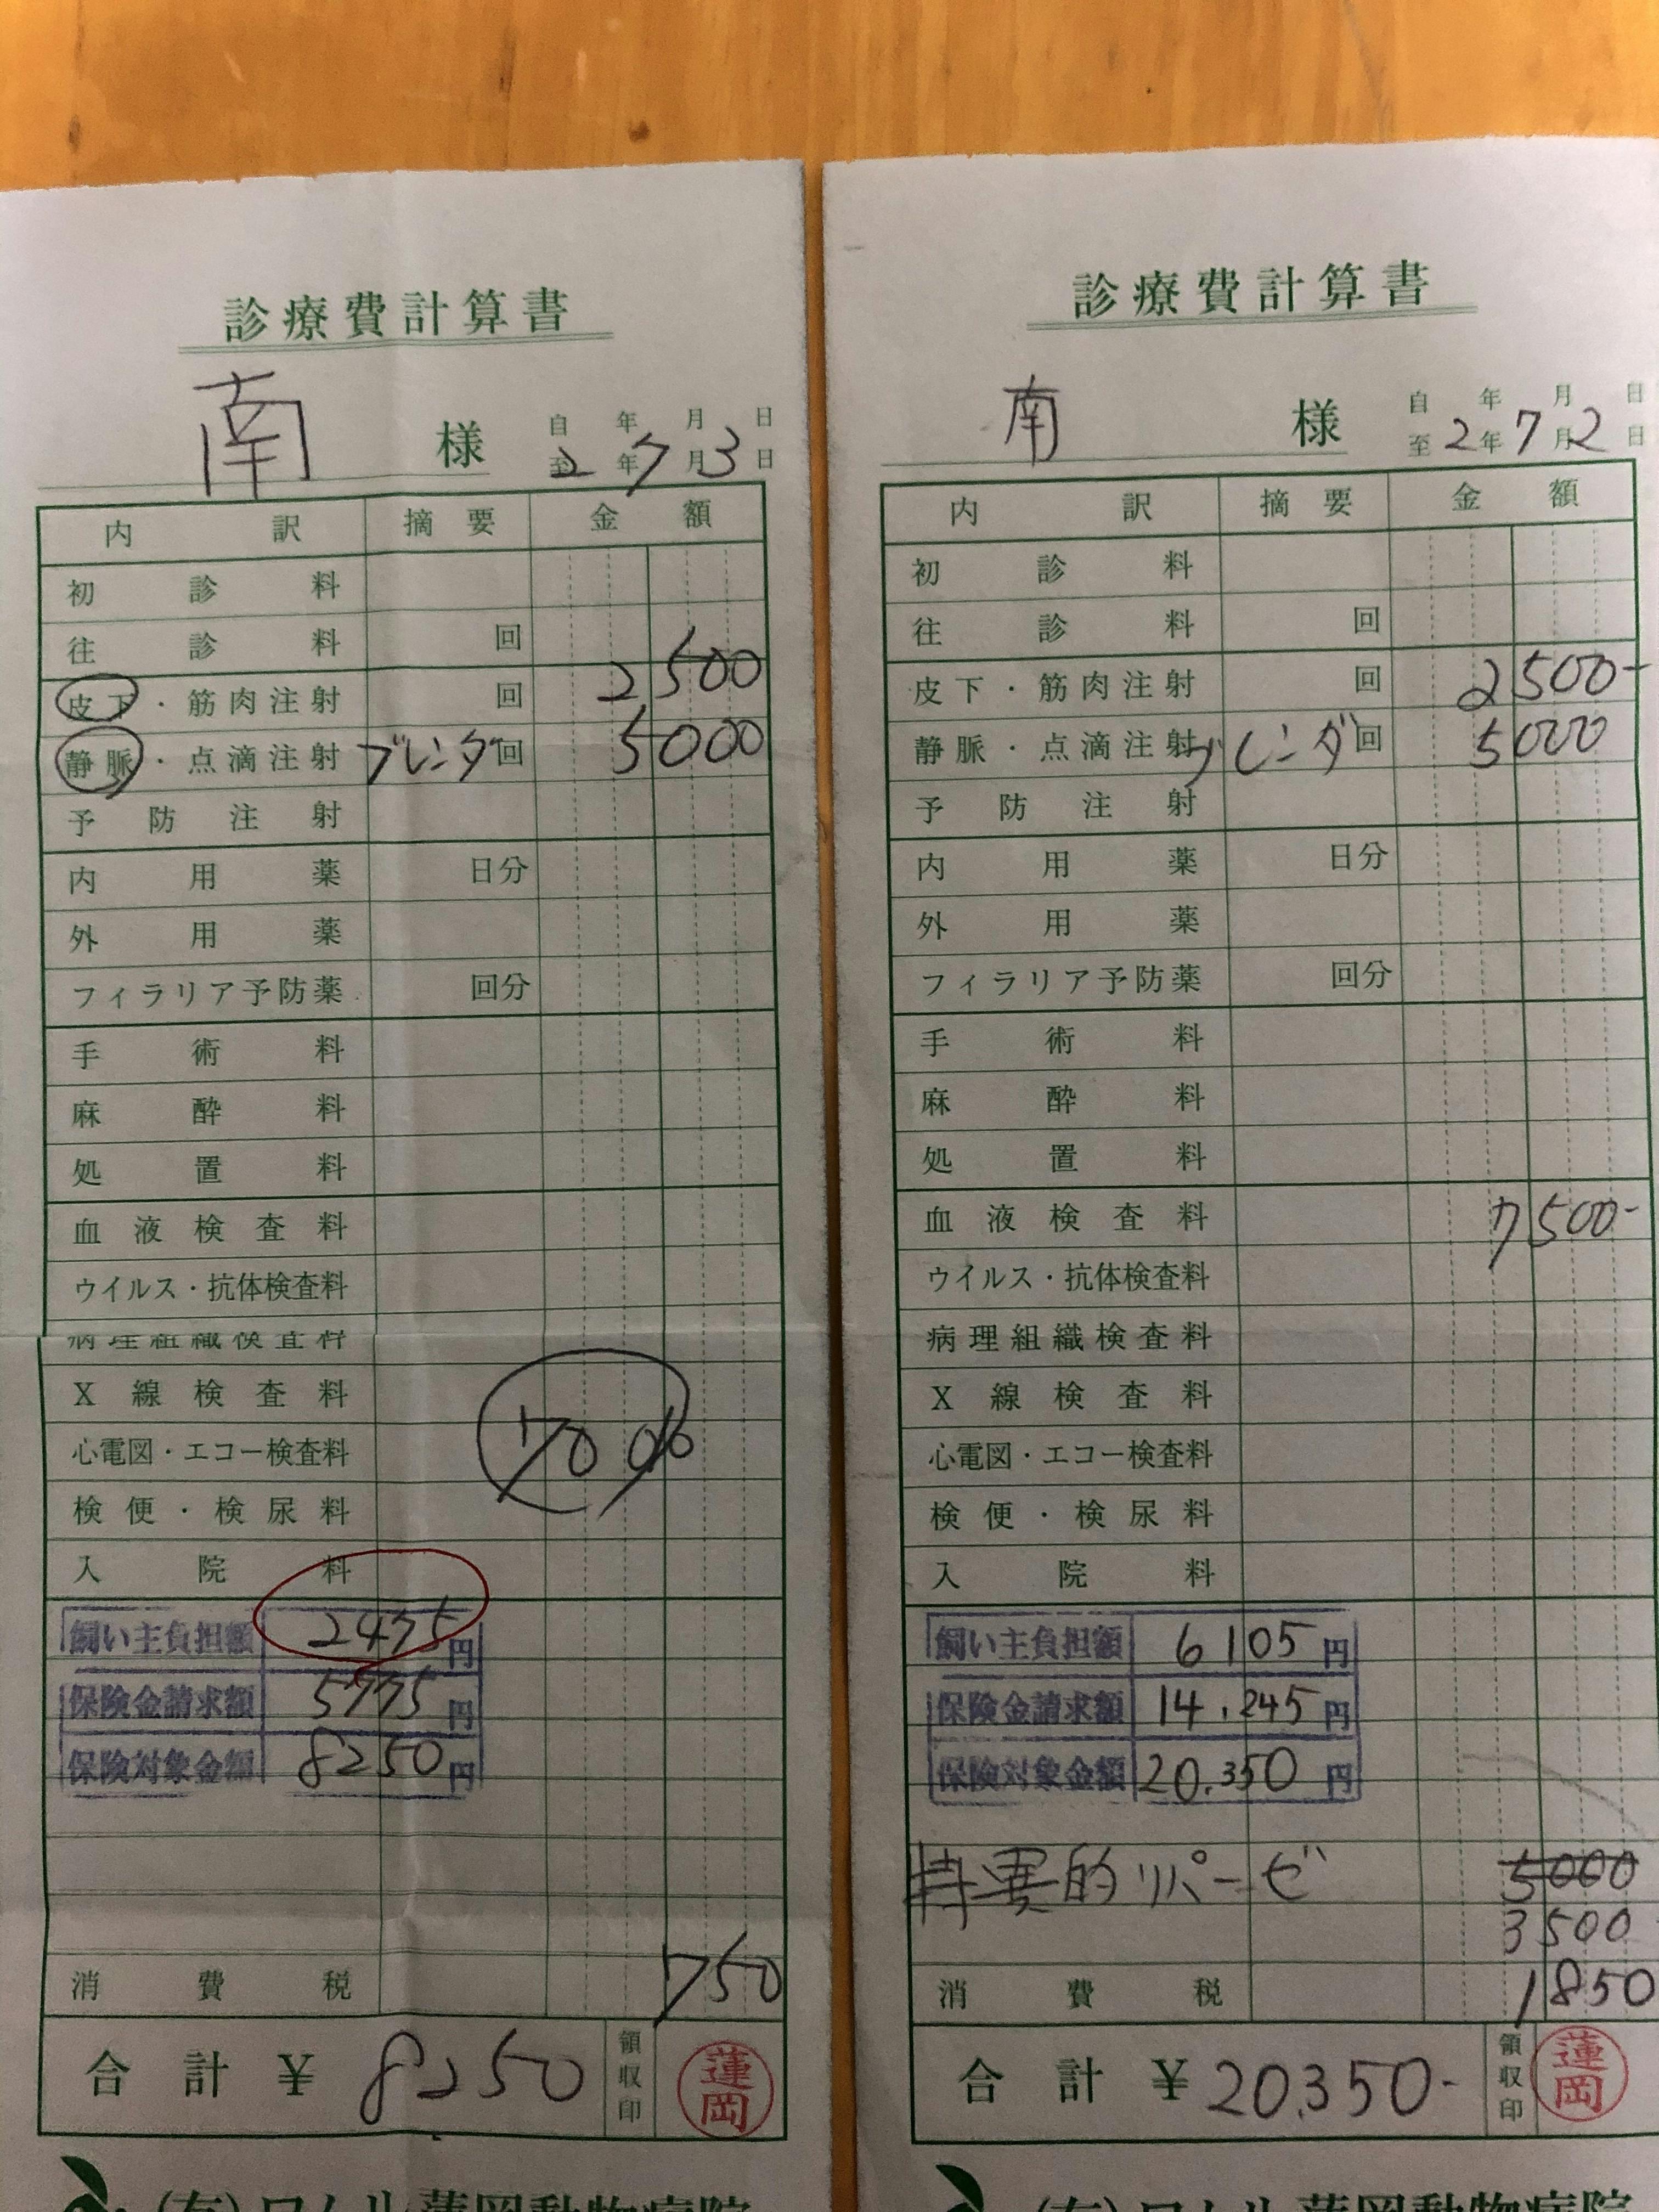 診療費計算書
南 様
自 年 月 日
至 2年 7月 3日
内訳 摘要 金額
初診料
往診料 回
皮下・筋肉注射 回 2500
静脈・点滴注射 ブレンダ 回 5000
予防注射
内用薬 日分
外用薬
フィラリア予防薬 回分
手術料
麻酔料
処置料
血液検査料
ウイルス・抗体検査料
病理組織検査料
X線検査料
70%
心電図・エコー検査料
検便・検尿料
入院料
飼い主負担額 2475円
保険金請求額 5775円
保険対象金額 8250円
消費税 750
合計 ¥ 8250 領収印 蓮岡
診療費計算書
南 様
自 年 月 日
至 2年 7月 2日
内訳 摘要 金額
初診料
往診料 回
皮下・筋肉注射 回 2500-
静脈・点滴注射 ブレンダ 回 5000
予防注射
内用薬 日分
外用薬
フィラリア予防薬 回分
手術料
麻酔料
処置料
血液検査料 7500-
ウイルス・抗体検査料
病理組織検査料
X線検査料
心電図・エコー検査料
検便・検尿料
入院料
飼い主負担額 6105円
保険金請求額 14,245円
保険対象金額 20,350円
特異的リパーゼ 5000
3500
消費税 1850
合計 ¥ 20,350- 領収印 蓮岡